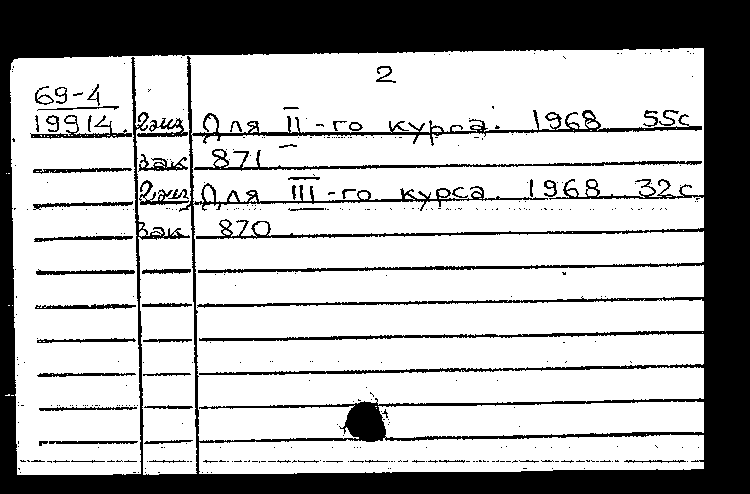 2
69-4
19914. 2экз Для II-го курса. 1968 55с
зак 871
2экз Для III-го курса. 1968. 32с
зак 870